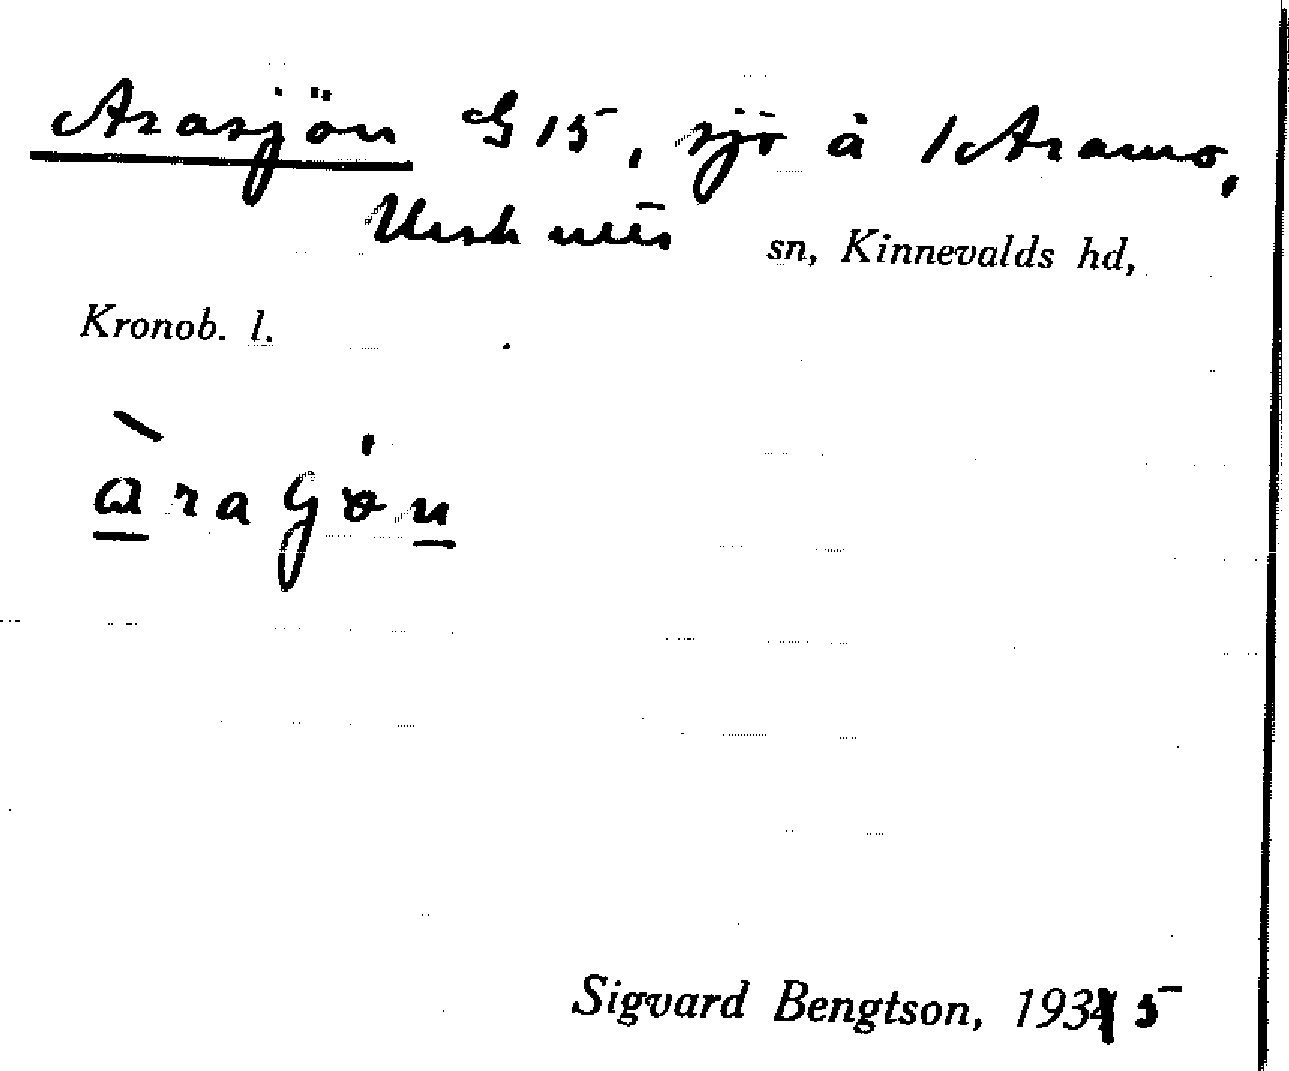 Arasjön G 15, sjö å 1 Aramo,
Urshult sn, Kinnevalds hd,
Kronob. l.
àraʃön
Sigvard Bengtson, 1935